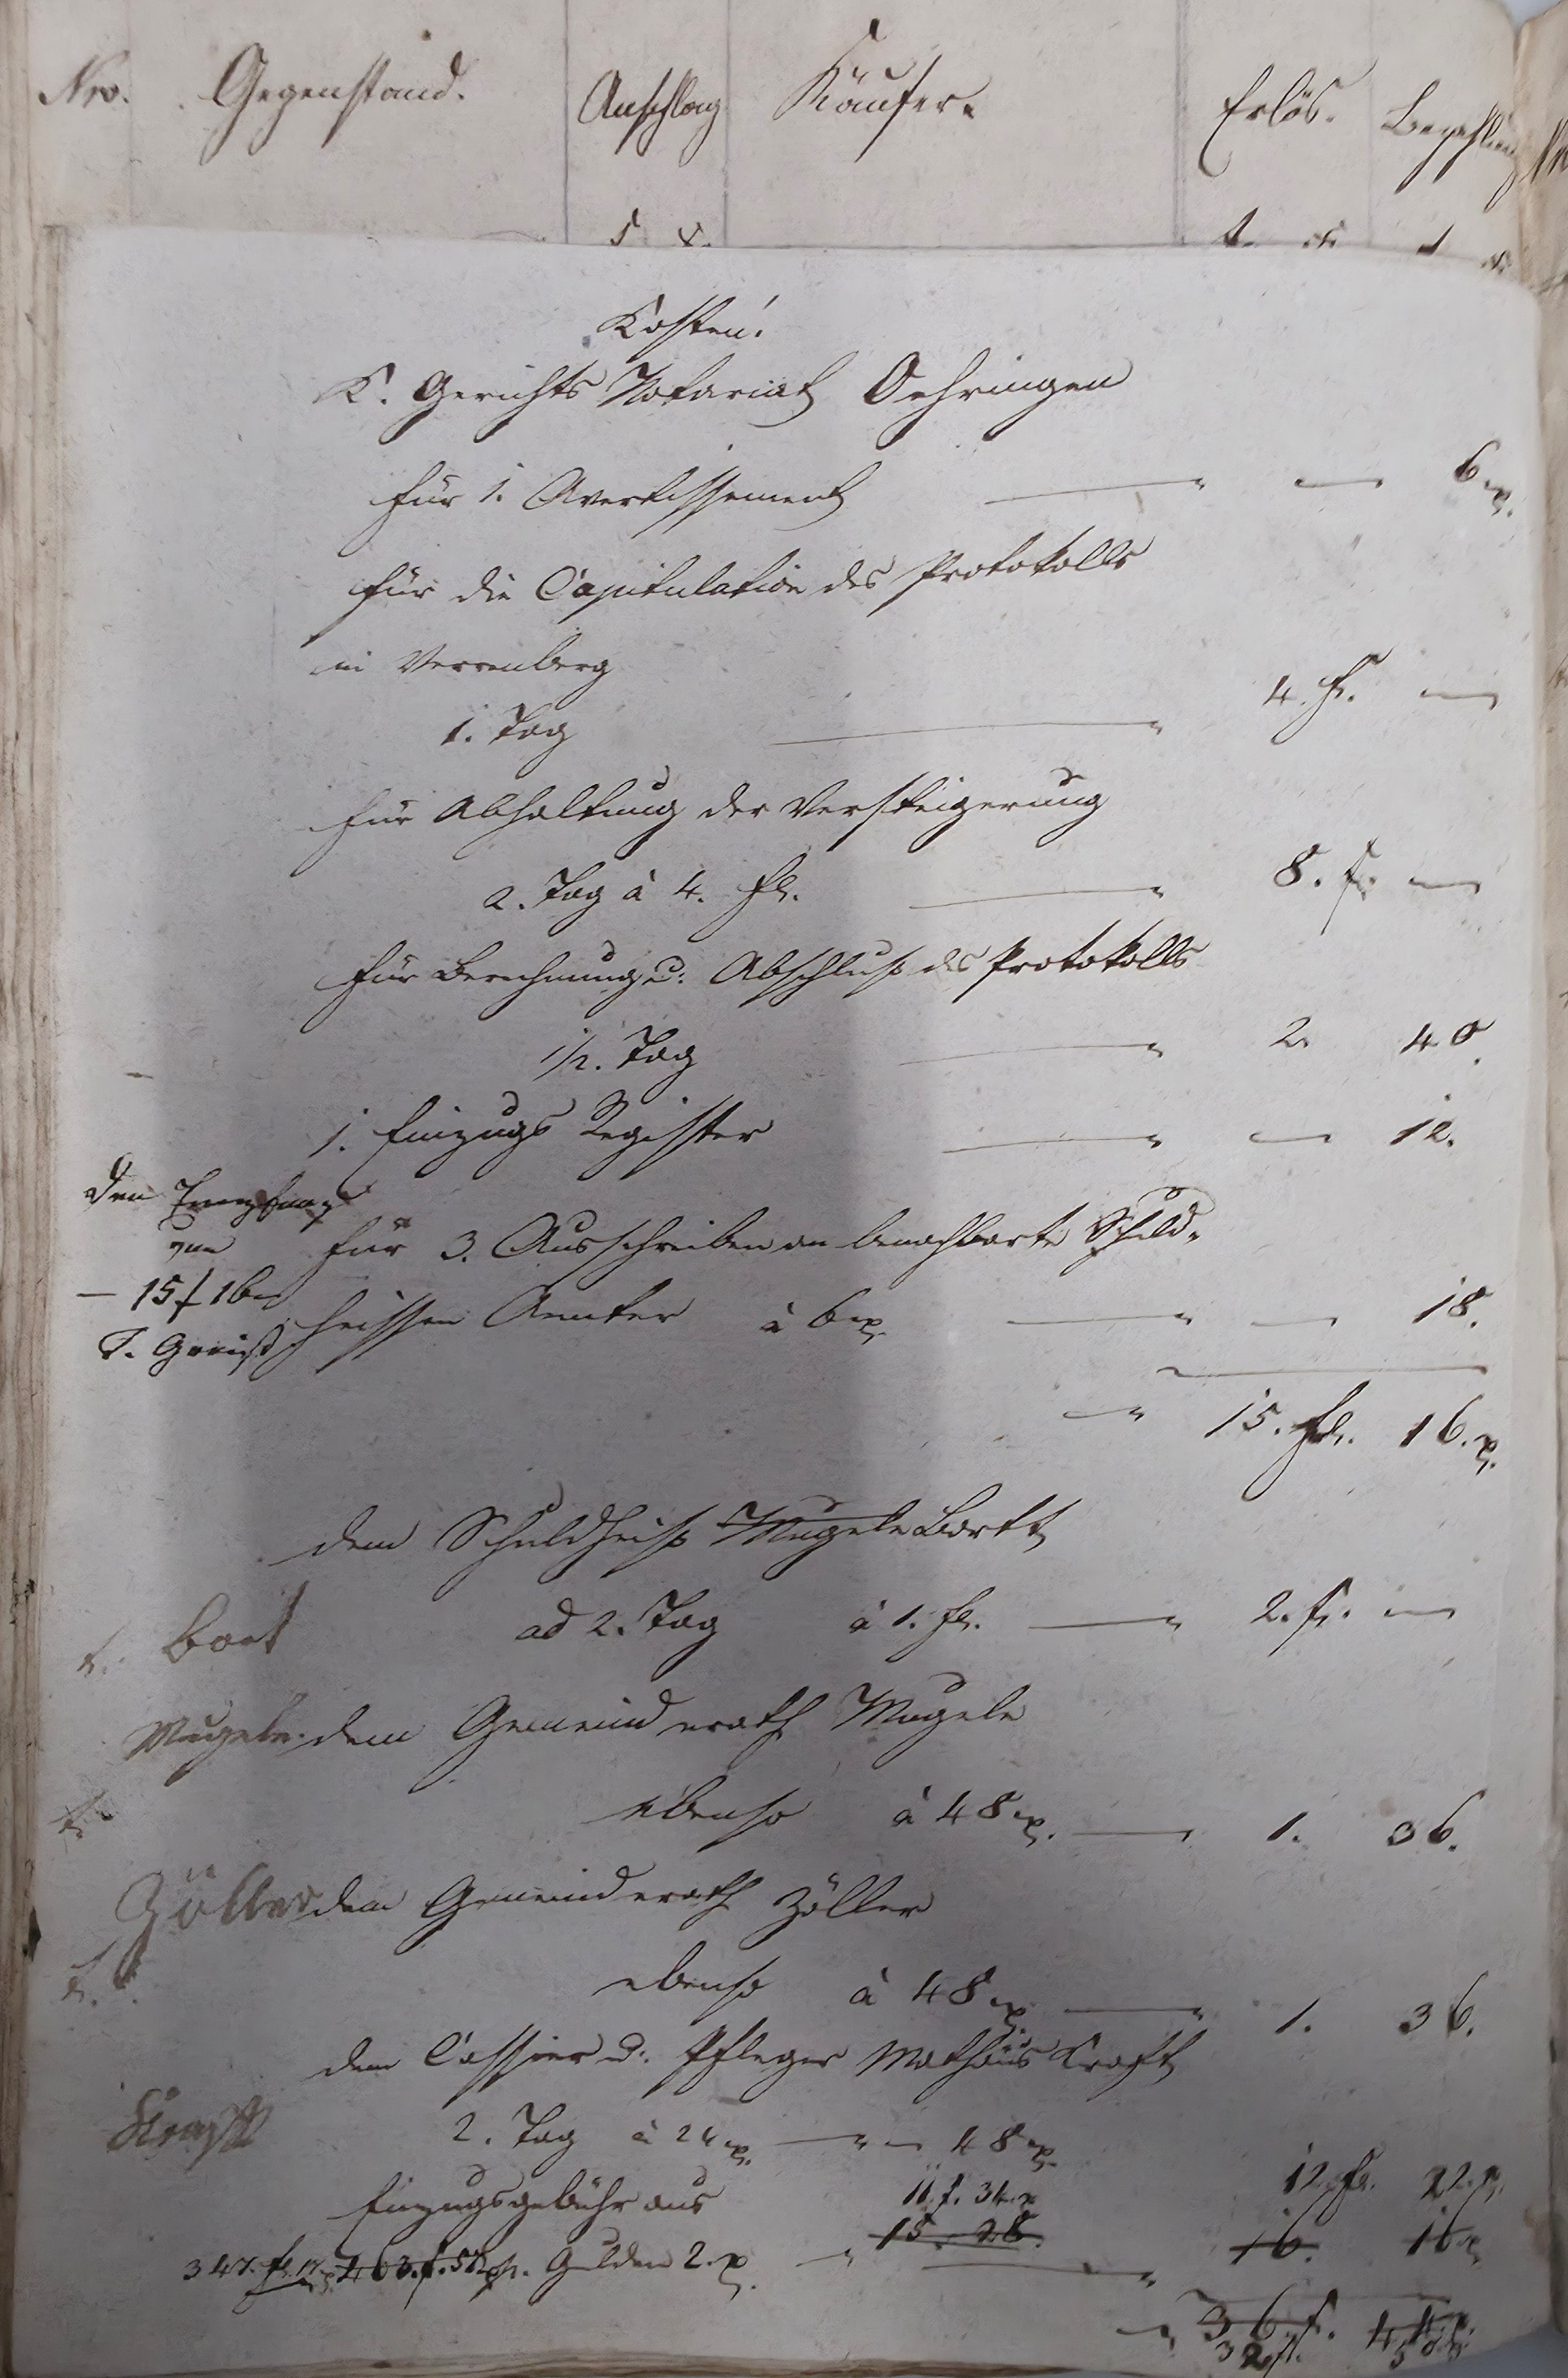 Nro. Gegenstand. Anschlag Käufer. Erlös. Bezahlung
f x.
Kosten.
K. Gerichts Notariat Oehringen
für 1. Avertissement — — 6 x.
für die Capitulation des Protokolls
in Verrenberg
1. Tag — 4. fl. —
für Abhaltung der Versteigerung
2. Tag à 4. fl. — 8. f. —
für Berechnung u. Abschluß des Protokolls
1/2. Tag — 2. 40.
1. Einzugs Register — — 12.
den Empfang
von
für 3. Ausschreiben an benachbarte Schuld-
— 15 f 16 x
heissen Aemter à 6 x. — — 18.
T.
— 15. fl. 16. x.
dem Schuldheiß Mugele Bortt
t. Bort
ad 2. Tag à 1. fl. — 2. f. —
Mugele. dem Gemeinderath Mugele
t.
ebenso à 48 x. — 1. 36.
Zöller dem Gemeinderath Zöller
t.
ebenso à 48 x. — 1. 36.
dem Cassier u. Pfleger Mathäus Craft
Kraft
2. Tag à 24 x. — 48 x.
Einzugsgebühr aus 11. f. 34. x 12. fl. 22. x.
347. fl. 17. x 463. f. 52 x. Gulden 2. x. — 15. 28. 16. 16 x
— 36 f. 44 x.
32 fl. 50 x.